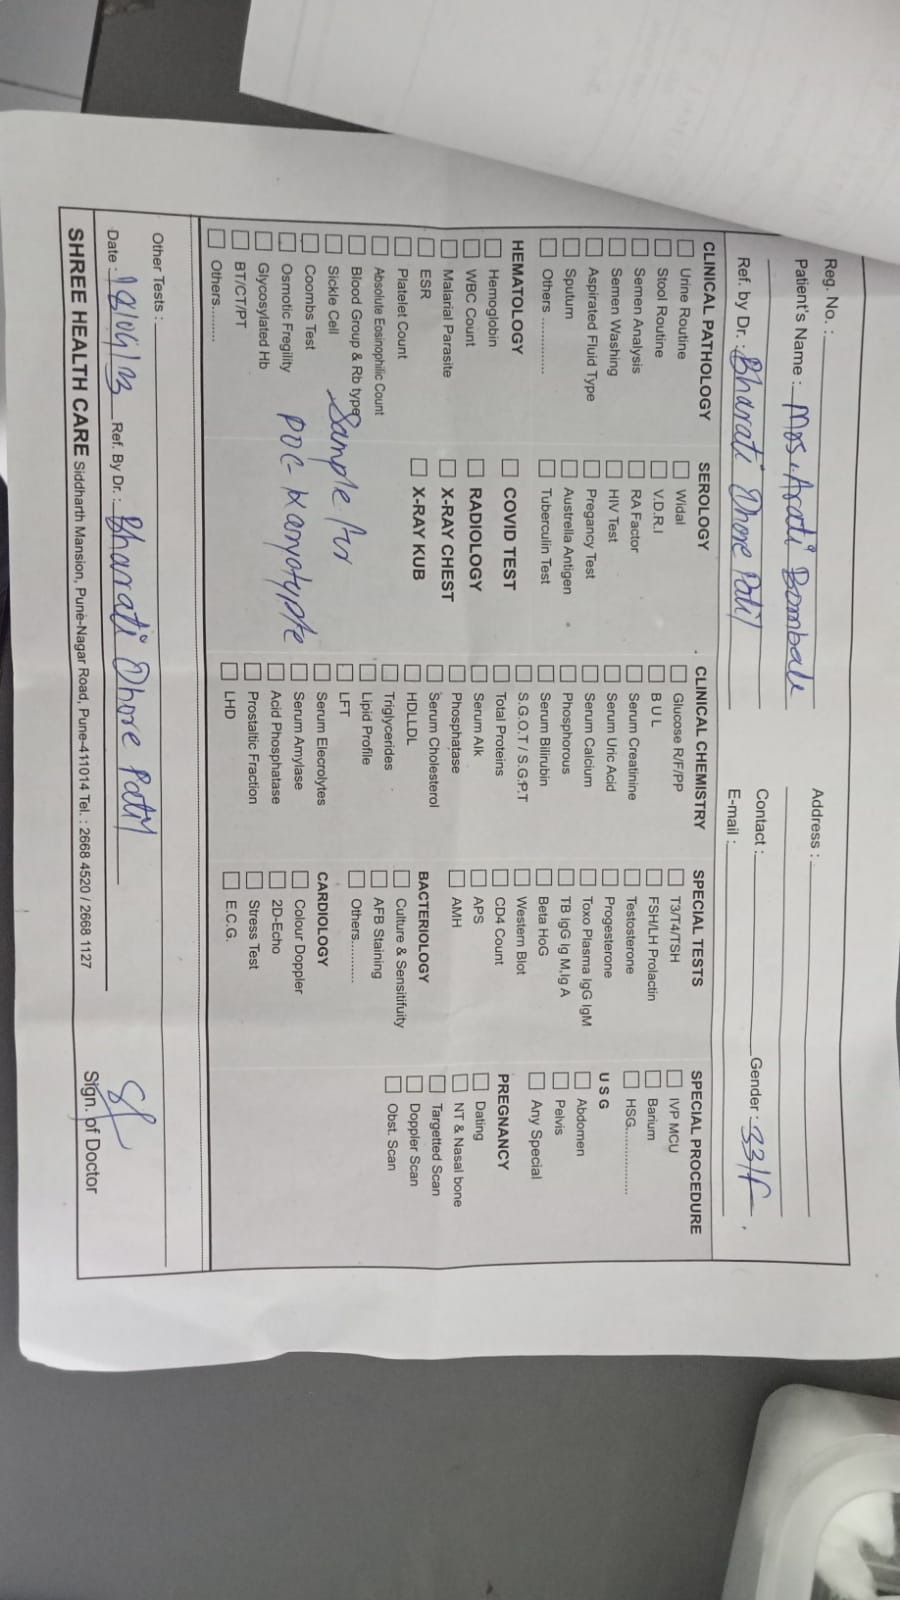 Reg. No. :
Patient's Name : Mrs. Arati Bombale
Ref. by Dr. : Bharati Dhore Patil
Address :
Contact :
E-mail :
Gender : 33/F
CLINICAL PATHOLOGY
Urine Routine
Stool Routine
Semen Analysis
Semen Washing
Aspirated Fluid Type
Sputum
Others ............
HEMATOLOGY
Hemoglobin
WBC Count
Malarial Parasite
ESR
Platelet Count
Absolute Eosinophilic Count
Blood Group & Rb type
Sickle Cell
Coombs Test
Osmotic Fregility
Glycosylated Hb
BT/CT/PT
Others.........
SEROLOGY
Widal
V.D.R.I
RA Factor
HIV Test
Pregancy Test
Austrella Antigen
Tuberculin Test
COVID TEST
RADIOLOGY
X-RAY CHEST
X-RAY KUB
Sample for
POC- Karyotypte
CLINICAL CHEMISTRY
Glucose R/F/PP
B U L
Serum Creatinine
Serum Uric Acid
Serum Calcium
Phosphorous
Serum Bilirubin
S.G.O.T / S.G.P.T
Total Proteins
Serum Alk
Phosphatase
Serum Cholesterol
HDLLDL
Triglycerides
Lipid Profile
LFT
Serum Elecrolytes
Serum Amylase
Acid Phosphatase
Prostaltic Fraction
LHD
SPECIAL TESTS
T3/T4/TSH
FSH/LH Prolactin
Testosterone
Progesterone
Toxo Plasma IgG IgM
TB IgG Ig M,Ig A
Beta HoG
Western Blot
CD4 Count
APS
AMH
BACTERIOLOGY
Culture & Sensitifuity
AFB Staining
Others...........
CARDIOLOGY
Colour Doppler
2D-Echo
Stress Test
E.C.G.
SPECIAL PROCEDURE
IVP MCU
Barium
HSG................
U S G
Abdomen
Pelvis
Any Special
PREGNANCY
Dating
NT & Nasal bone
Targetted Scan
Doppler Scan
Obst. Scan
Other Tests :
Date : Ref. By Dr. : Bharati Dhore Patil
Sign. of Doctor
SHREE HEALTH CARE Siddharth Mansion, Pune-Nagar Road, Pune-411014 Tel. : 2668 4520 / 2668 1127